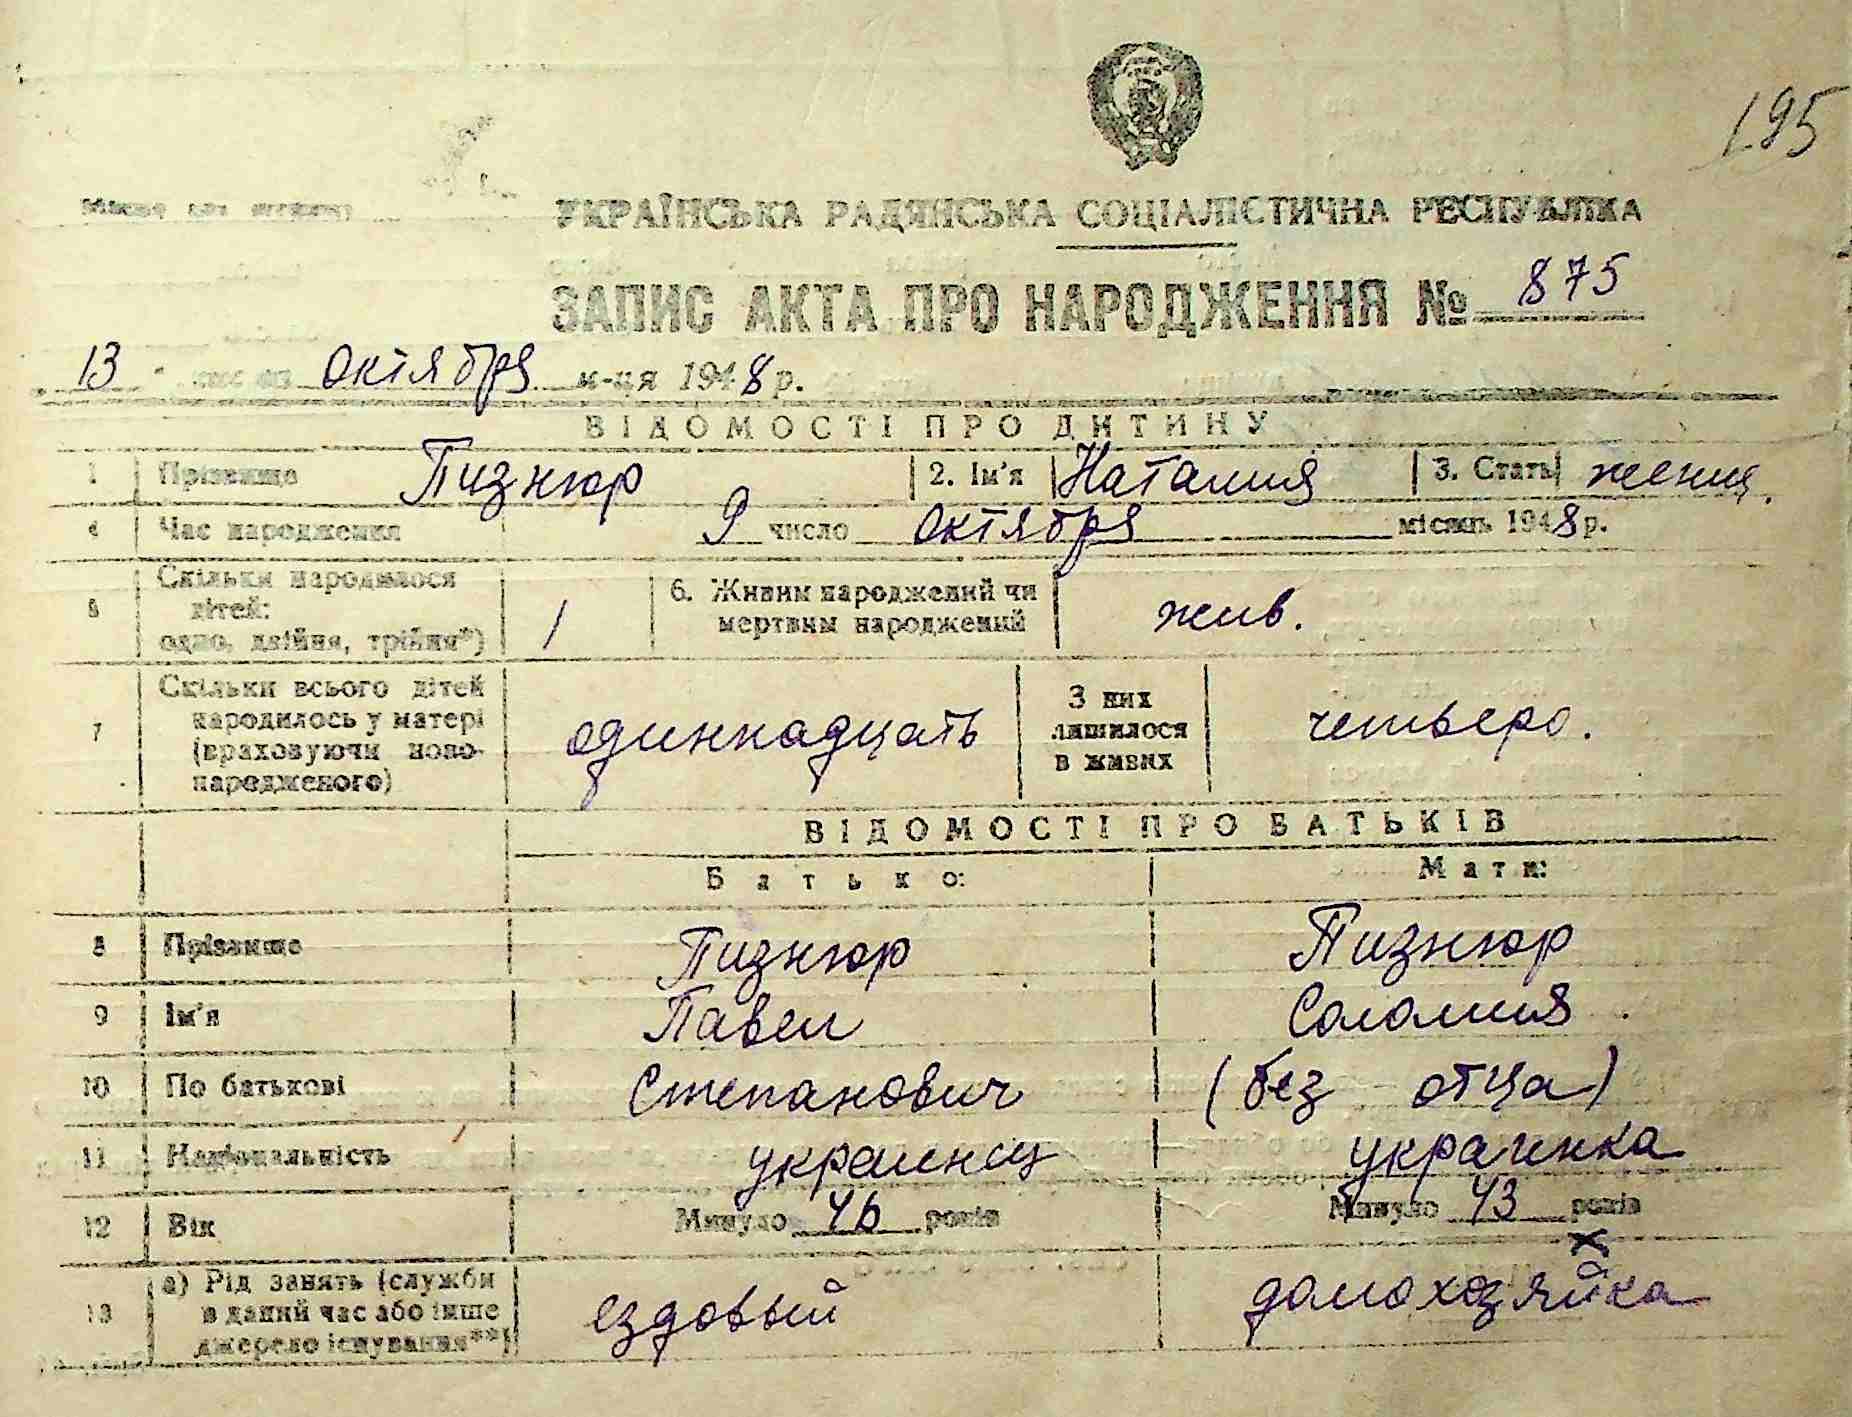 195
Місце для штампу
УКРАЇНСЬКА РАДЯНСЬКА СОЦІАЛІСТИЧНА РЕСПУБЛІКА
ЗАПИС АКТА ПРО НАРОДЖЕННЯ № 875
13 октября м-ця 1948 р.
ВІДОМОСТІ ПРО ДИТИНУ
1 Прізвище Пизнюр 2. Ім'я Наталия 3. Стать женщ.
4 Час народження 9 число октября місяць 1948 р.
5 Скільки народилося дітей: одно, двійня, трійня*) 1 6. Живим народжений чи мертвим народжений жив.
7 Скільки всього дітей народилось у матері (враховуючи ново-народженого) одиннадцать З них лишилося в живих четверо.
ВІДОМОСТІ ПРО БАТЬКІВ
Батько: Мати:
8 Прізвище Пизнюр Пизнюр
9 Ім'я Павел Соломия.
10 По батькові Степанович (без отца)
11 Національність украинец украинка
12 Вік Минуло 46 років Минуло 43 років
13 а) Рід занять (служби в даний час або інше джерело існування**) ездовый домохозяйка